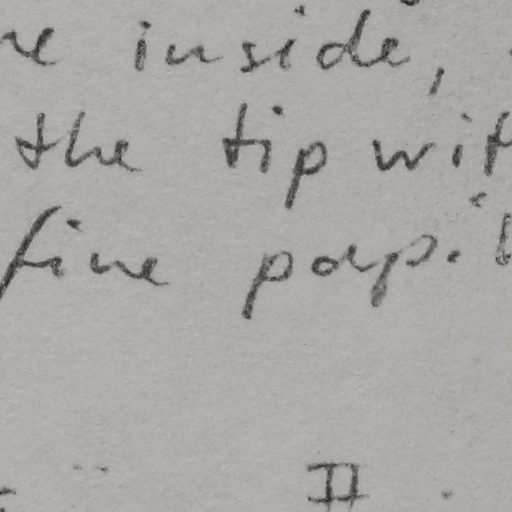 inside,
the tip wit
fine pap.
II